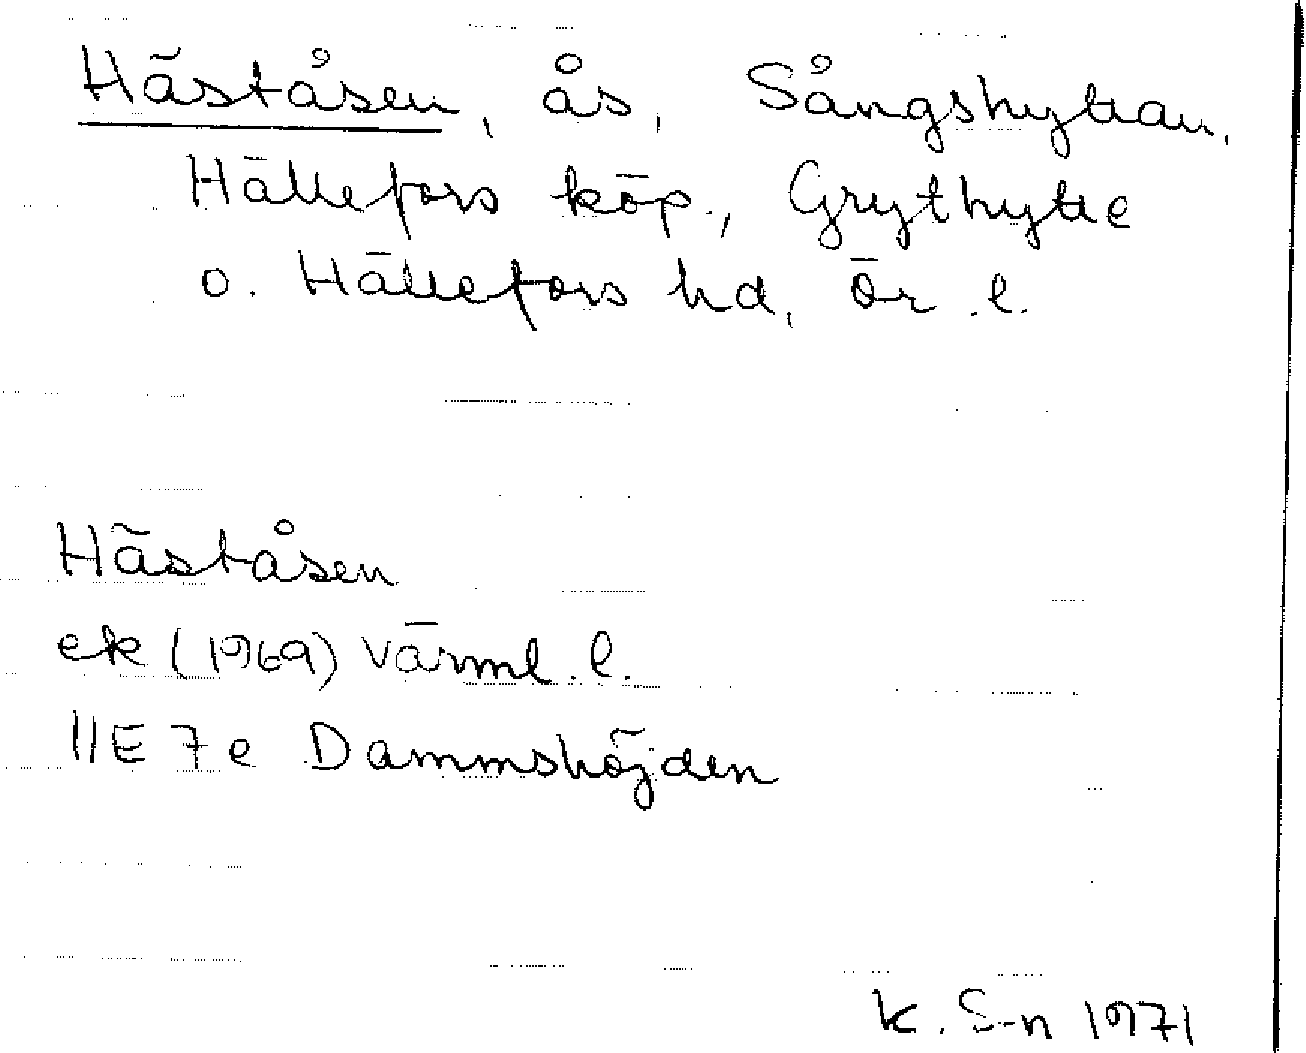 Häståsen, ås, Sångshyttan,
Hällefors köp., Grythytte
o. Hällefors hd, Ör. l.
Häståsen
ek (1969) Värml. l.
11E 7e Dammshöjden
K. S-n 1971